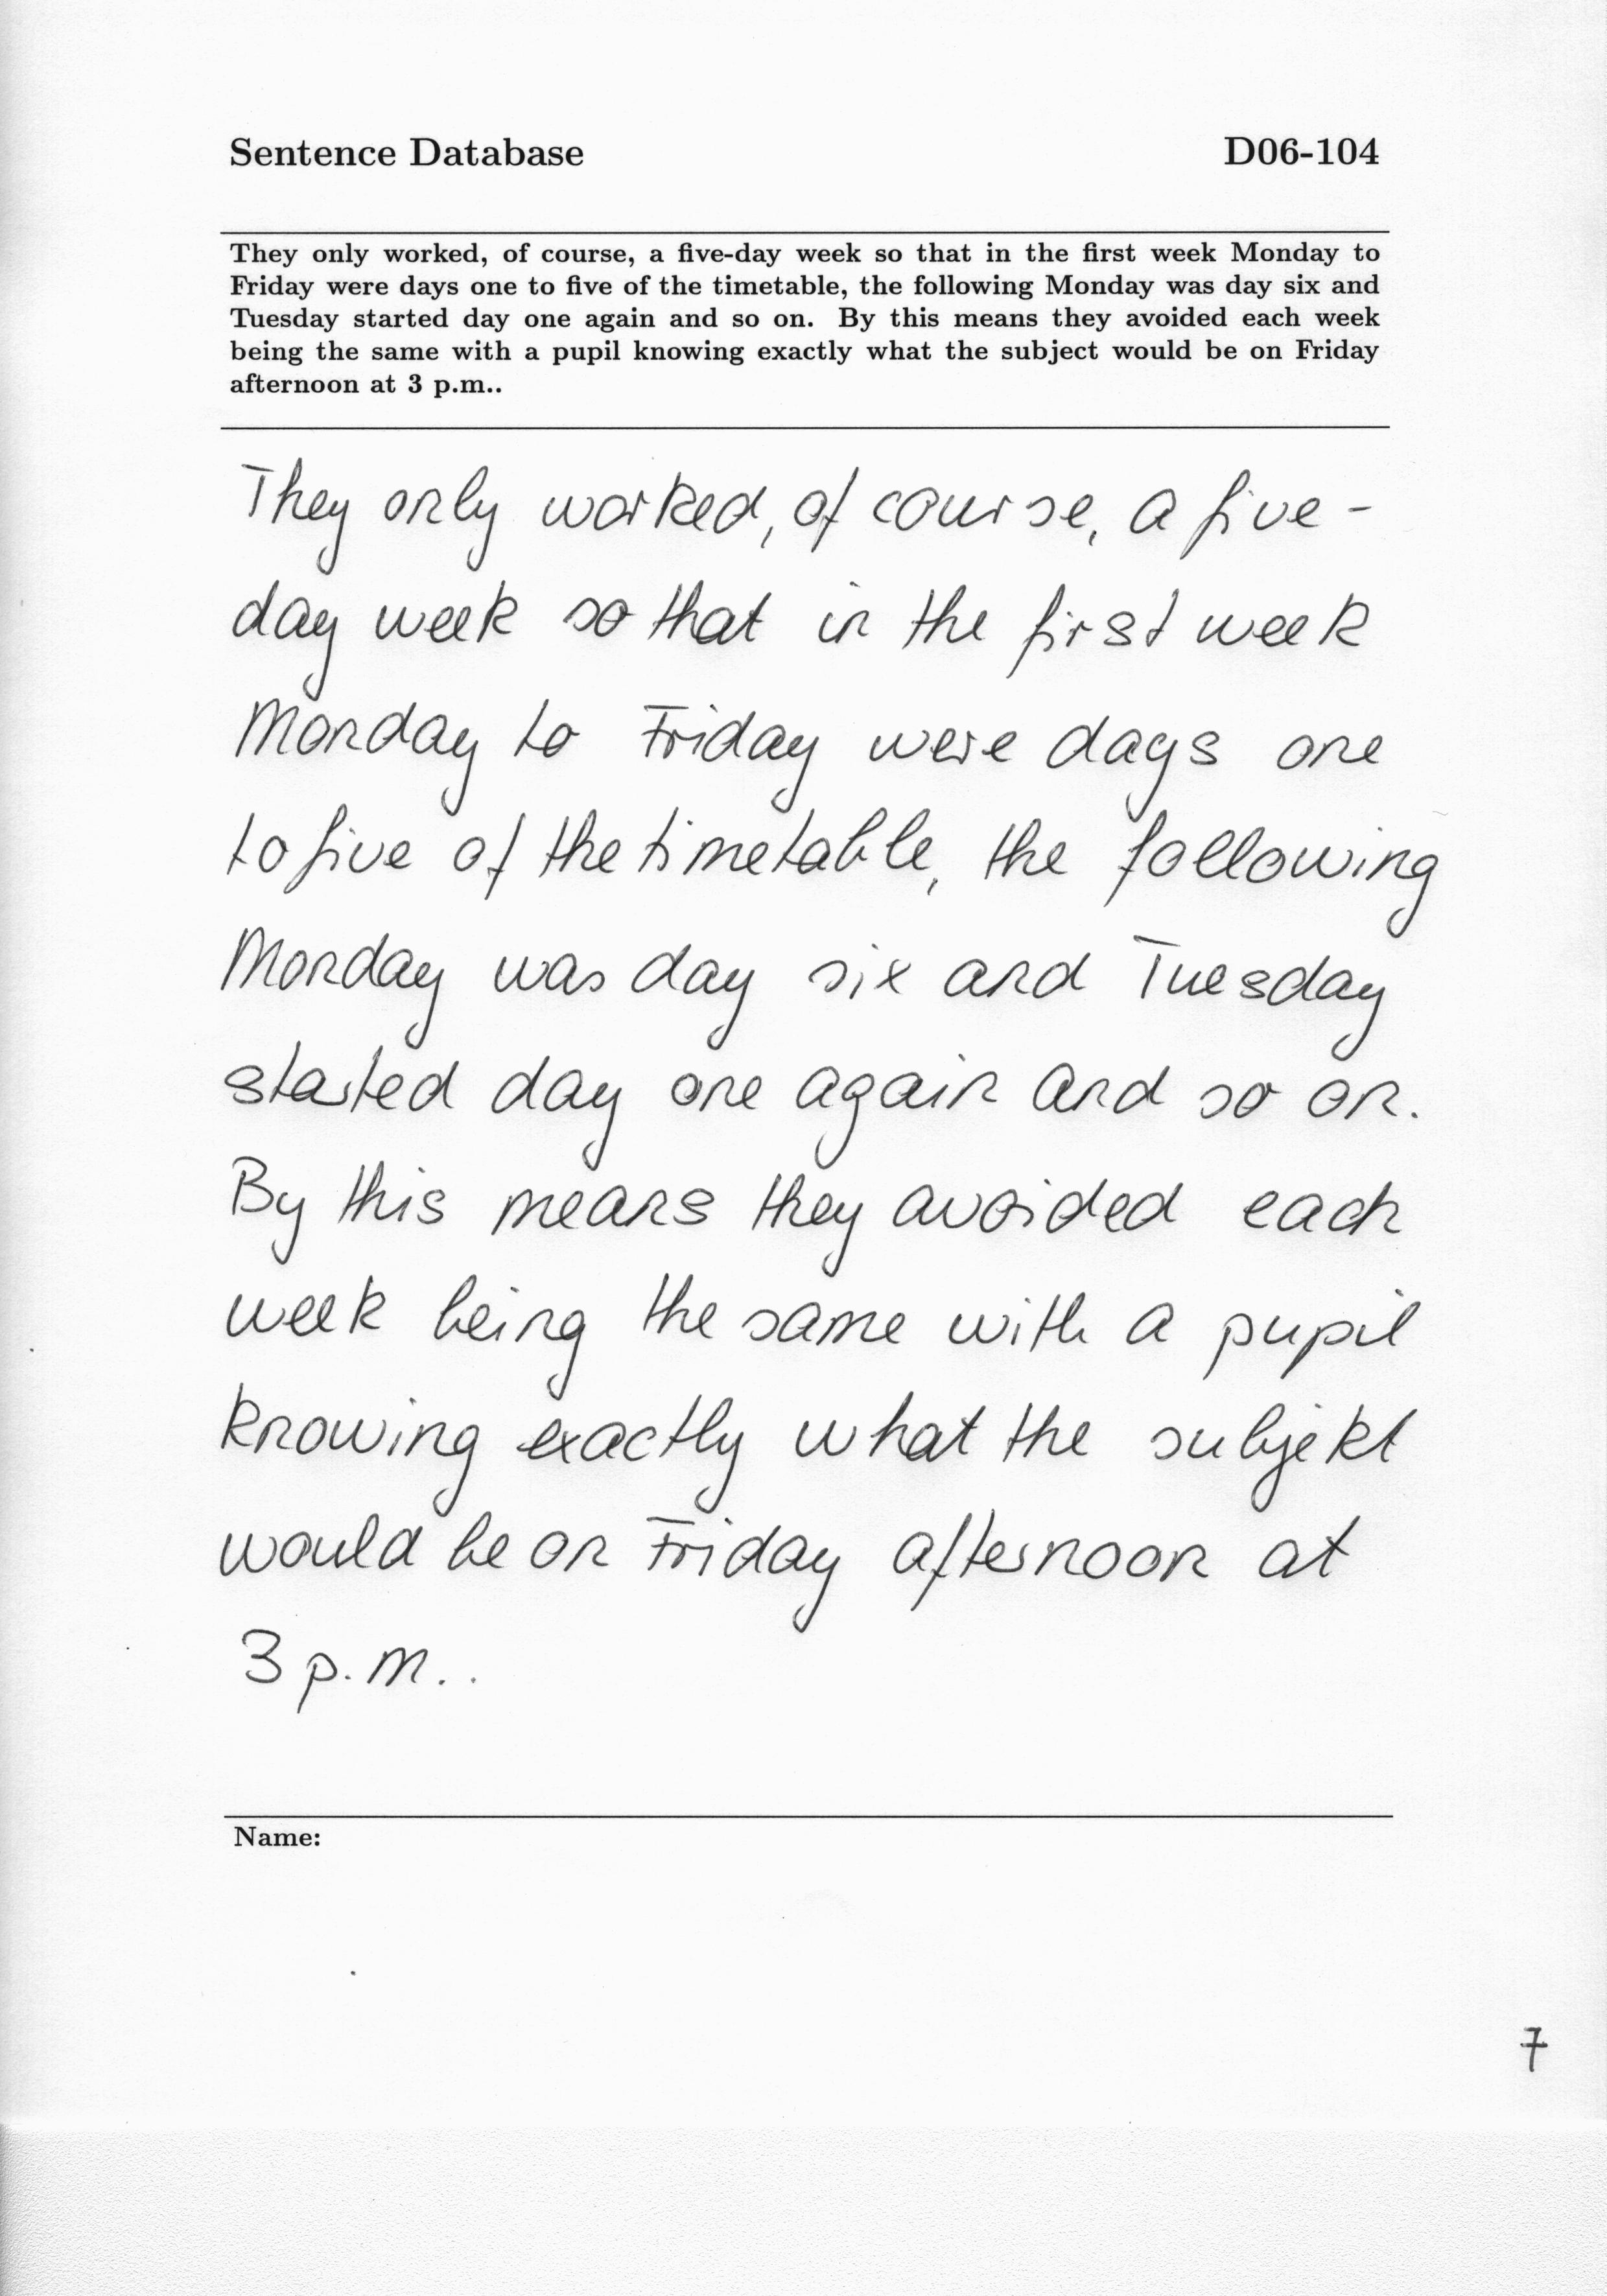 Sentence Database D06-104
They only worked, of course, a five-day week so that in the first week Monday to
Friday were days one to five of the timetable, the following Monday was day six and
Tuesday started day one again and so on. By this means they avoided each week
being the same with a pupil knowing exactly what the subject would be on Friday
afternoon at 3 p.m..
They only worked, of course, a five-
day week so that in the first week
Monday to Friday were days one
to five of the timetable, the following
Monday was day six and Tuesday
started day one again and so on.
By this means they avoided each
week being the same with a pupil
knowing exactly what the subjekt
would be on Friday afternoon at
3 p.m..
Name:
7